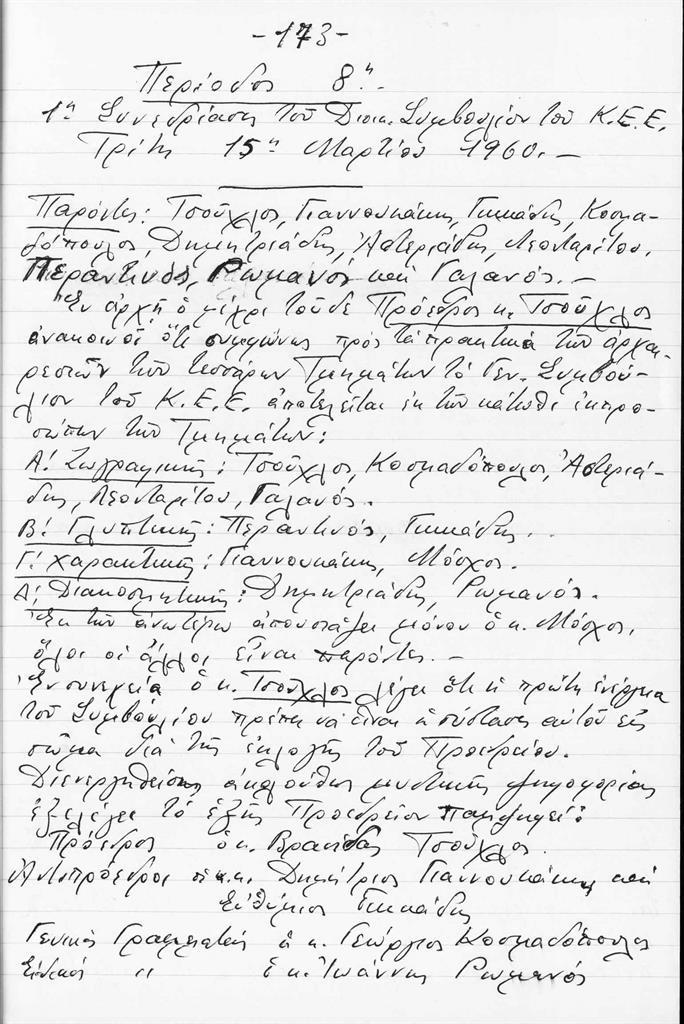 -173-
Περίοδος 8η.-
1η Συνεδρίασις τοῦ Διοικ. Συμβουλίου τοῦ Κ.Ε.Ε.
Τρίτη 15η Μαρτίου 1960.-
Παρόντες: Τσούχλος, Γιαννουκάκης, Γικκάδης, Κοσμα-
δόπουλος, Δημητριάδης, Ἀστεριάδης, Λεονταρίτου,
Περαντινός, Ρωμανός καὶ Γαλανός.-
Ἐν ἀρχῇ ὁ μέχρι τοῦδε Πρόεδρος κ. Τσούχλος
ἀνακοινοῖ ὅτι συμφώνως πρὸς τὰ πρακτικὰ τῶν ἀρχαι-
ρεσιῶν τῶν τεσσάρων Τμημάτων τὸ Γεν. Συμβού-
λιον τοῦ Κ.Ε.Ε. ἀποτελεῖται ἐκ τῶν κάτωθι ἐκπρο-
σώπων τῶν Τμημάτων:
Α! Ζωγραφικῆς: Τσούχλος, Κοσμαδόπουλος, Ἀστεριά-
δης, Λεονταρίτου, Γαλανός.
Β! Γλυπτικῆς: Περαντινός, Γικκάδης..
Γ! Χαρακτικῆς: Γιαννουκάκης, Μόσχος.
Δ! Διακοσμητικῆς: Δημητριάδης, Ρωμανός.
Ἐκ τῶν ἀνωτέρω ἀπουσιάζει μόνον ὁ κ. Μόσχος,
ὅλοι οἱ ἄλλοι εἶναι παρόντες.-
Ἐν συνεχείᾳ ὁ κ. Τσούχλος λέγει ὅτι ἡ πρώτη ἐνέργεια
τοῦ Συμβουλίου πρέπει νὰ εἶναι ἡ σύστασις αὐτοῦ εἰς
σῶμα διὰ τῆς ἐκλογῆς τοῦ Προεδρείου.
Διενεργηθείσης ἀκολούθως μυστικῆς ψηφοφορίας
ἐξελέγει τὸ ἑξῆς Προεδρεῖον παμψηφεί:
Πρόεδρος ὁ κ. Βρασίδας Τσούχλος.
Ἀντιπρόεδροι οἱ κ.κ. Δημήτριος Γιαννουκάκης καὶ
Εὐθύμιος Γικκάδης
Γενικὸς Γραμματεὺς ὁ κ. Γεώργιος Κοσμαδόπουλος
Εἰδικὸς " ὁ κ. Ἰωάννης Ρωμανός